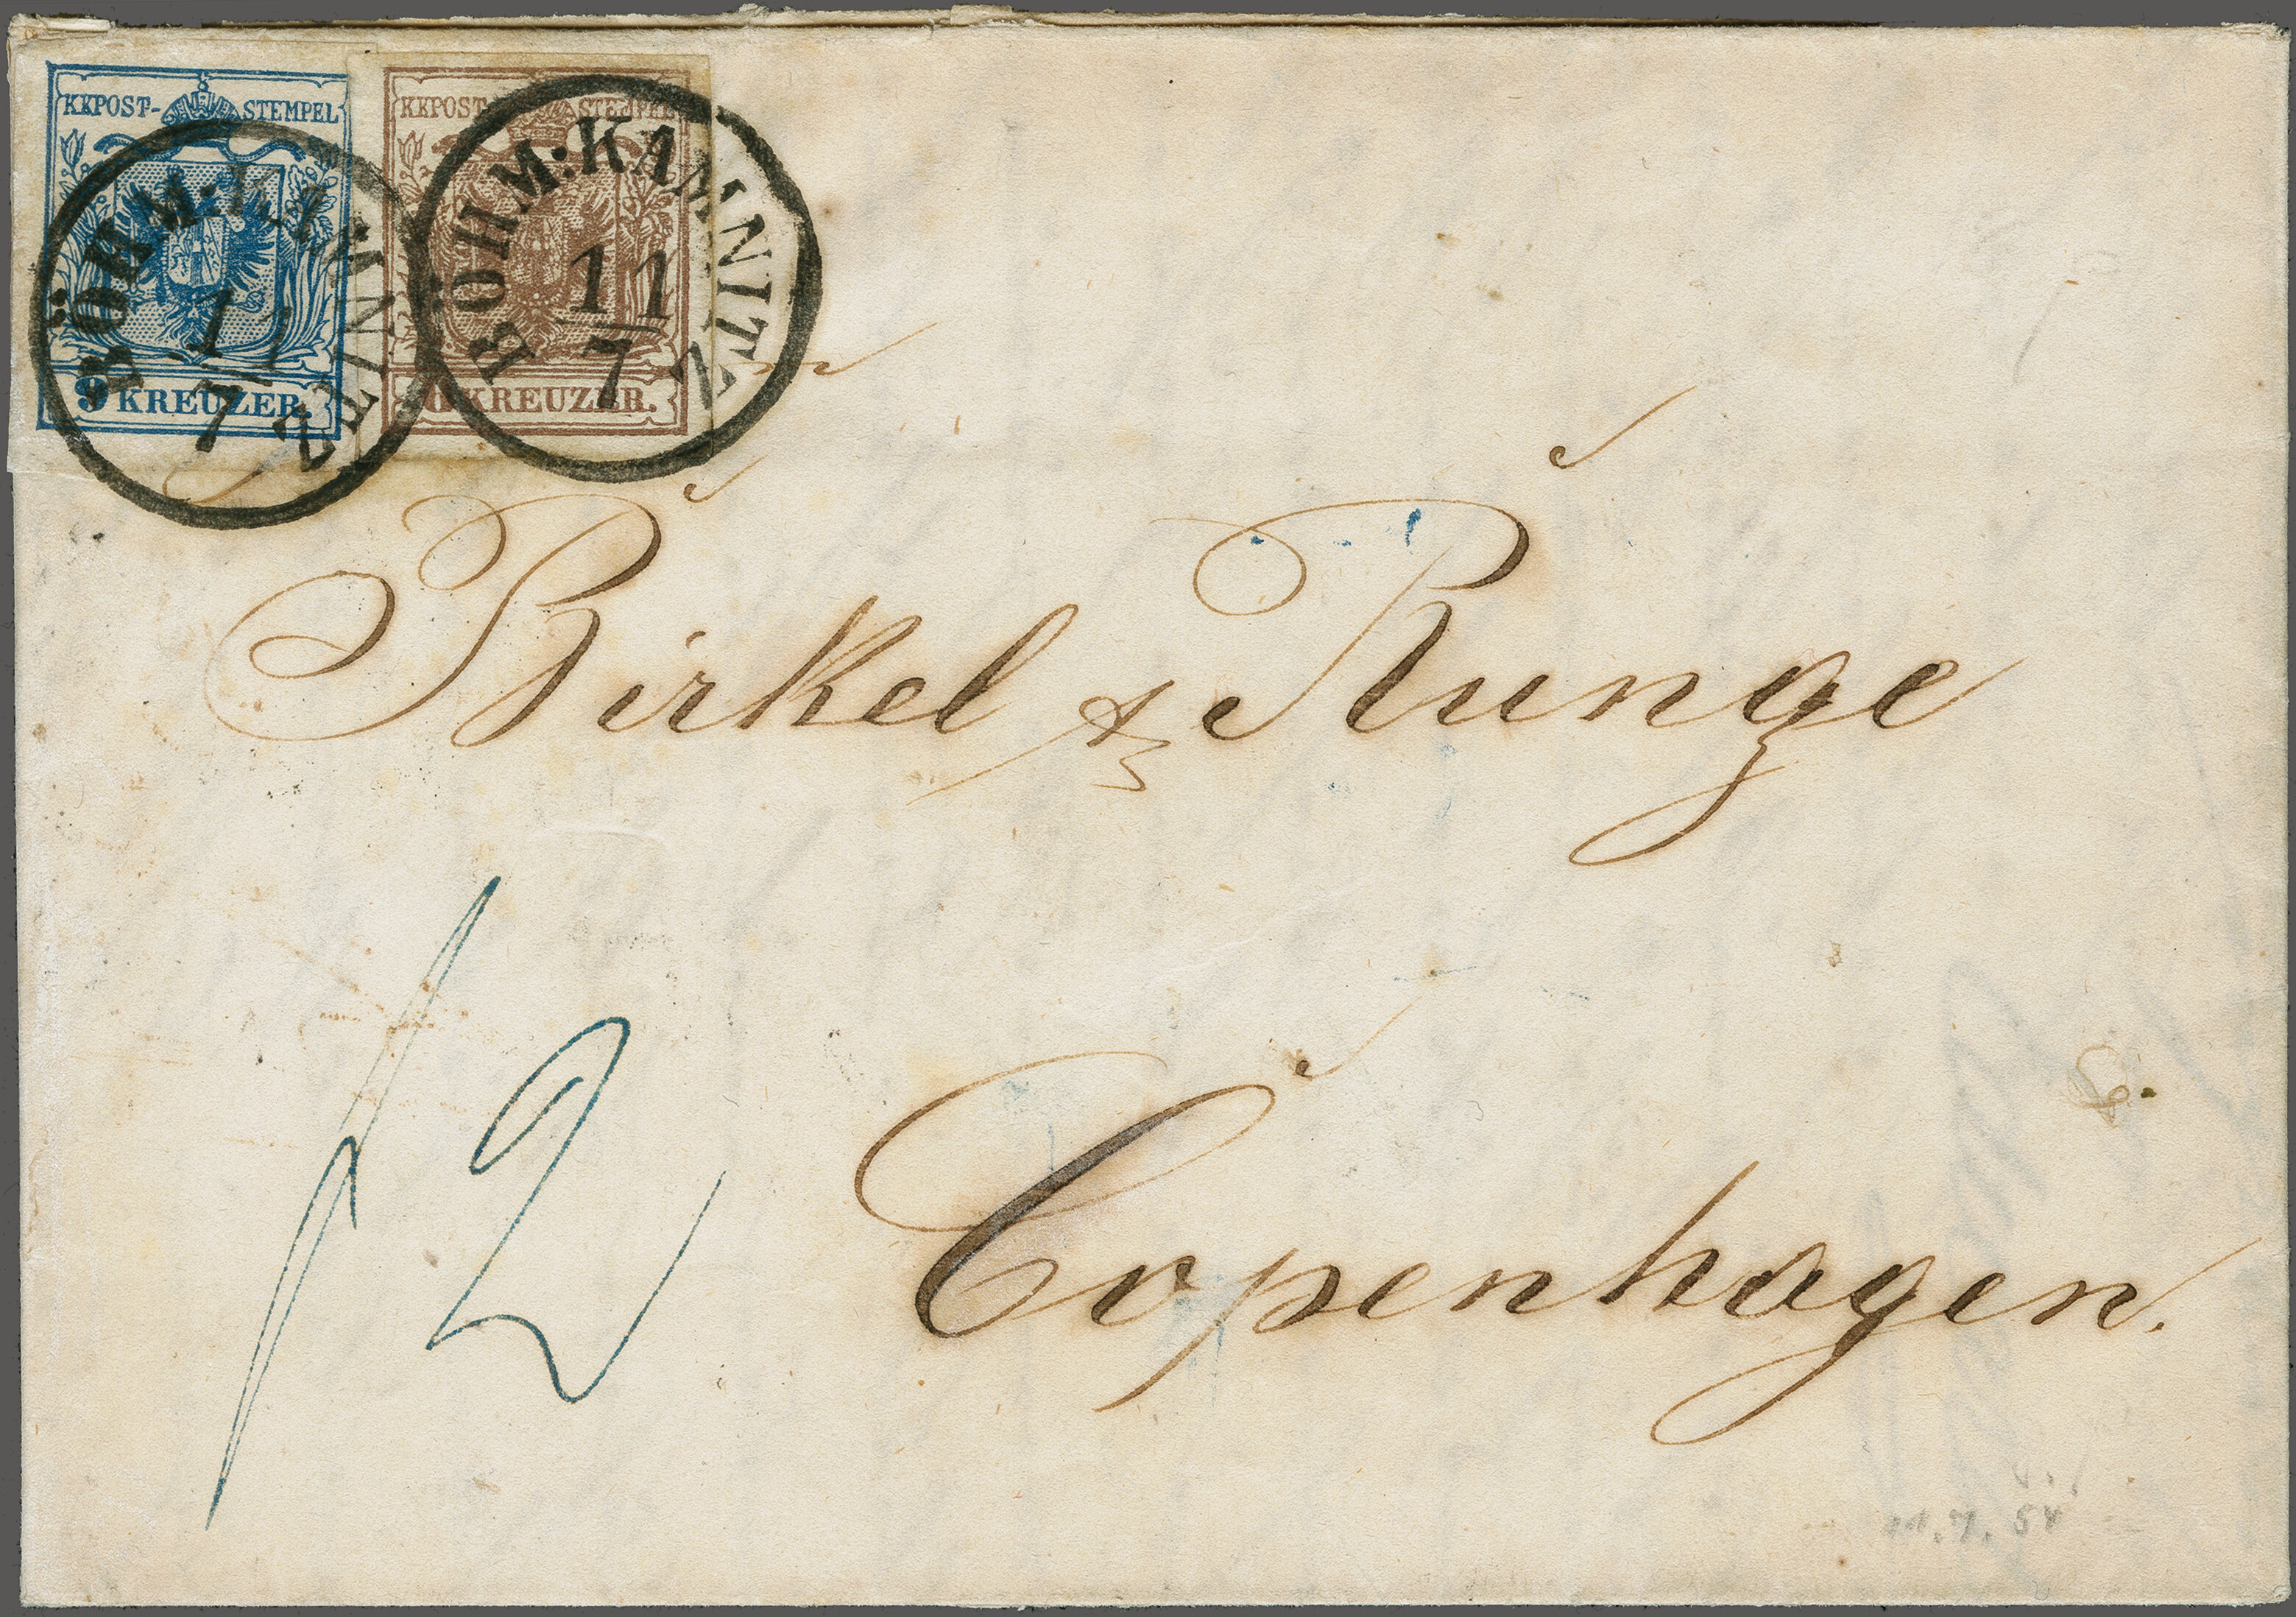 KKPOST-STEMPEL
9 KREUZER.
KKPOST-STEMPEL
6 KREUZER.
BÖHM:KAMNITZ
11
7
BÖHM:KAMNITZ
11
7
Birkel & Runge
12
Copenhagen.
11.7.54